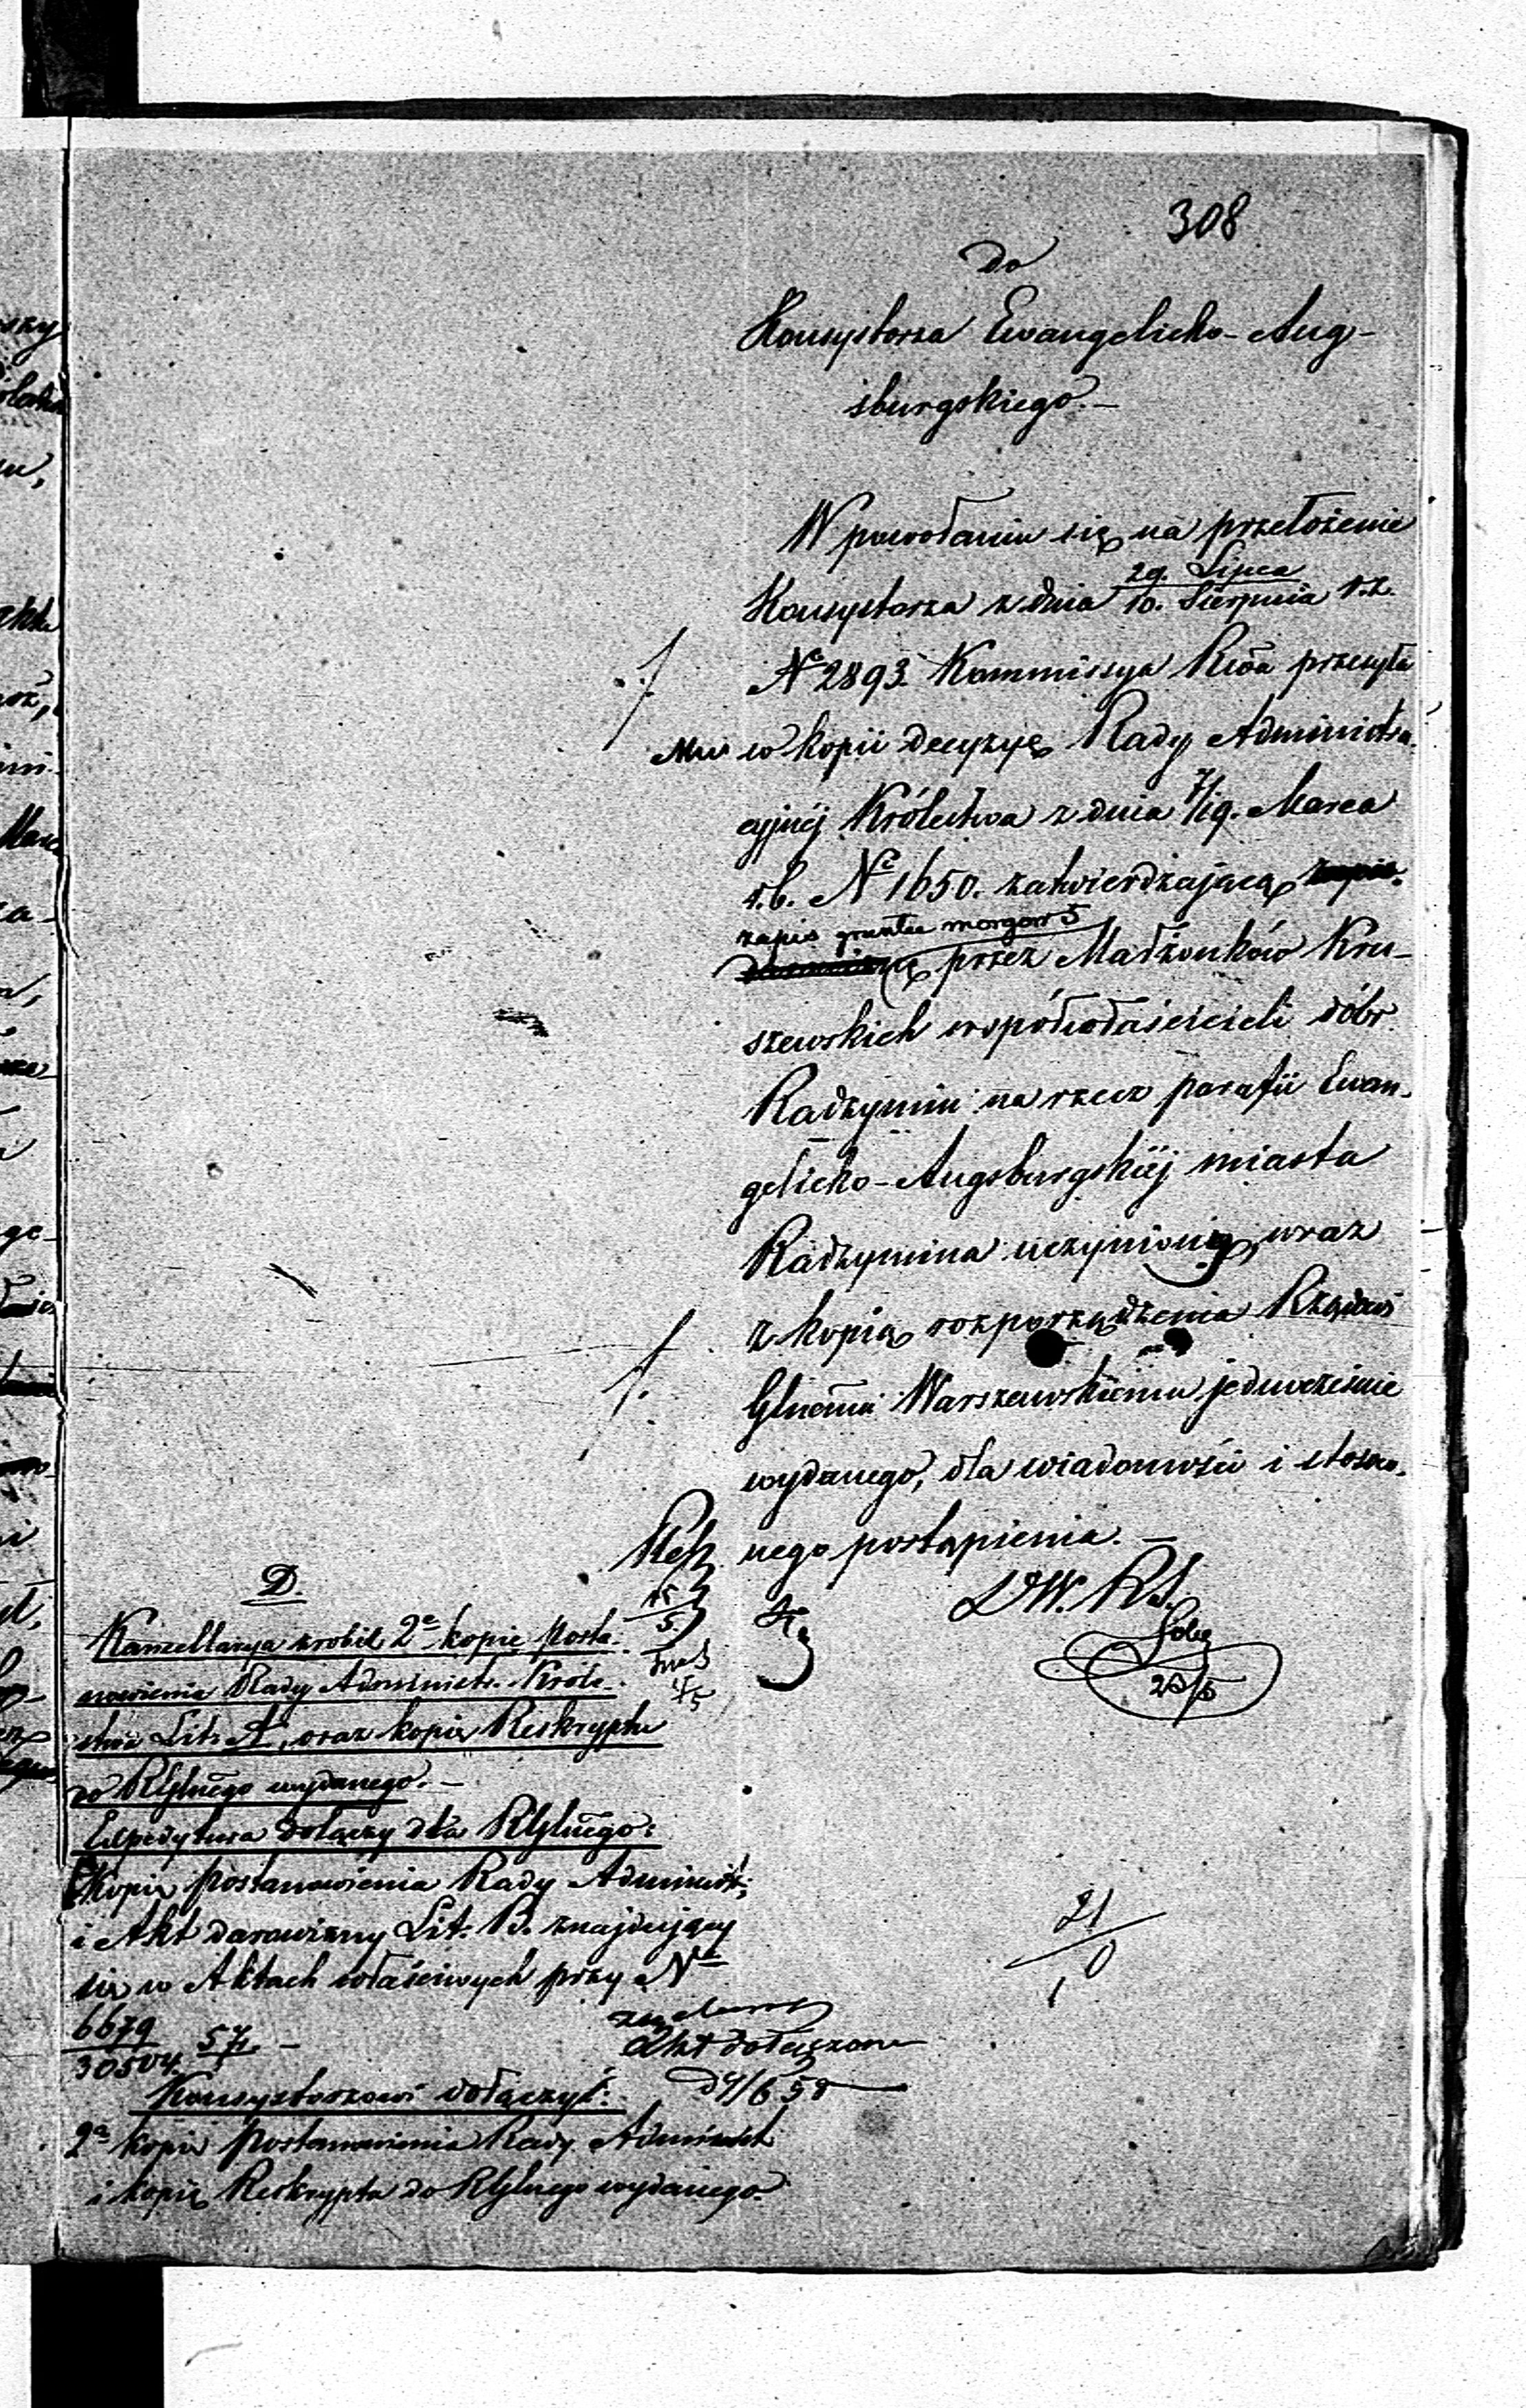 308
Do
Konsystorza Ewangelicko-Aug-
sburgskiego.—
W powołaniu się na przełożenie
Konsystorza z dnia 29. Lipca / 10. Sierpnia r.z.
№ 2893. Kommissya Rẕa przesyła
Mu w kopii decyzyę Rady Administra-
cyjnéj Królestwa z dnia 7/19. Marca
r.b. № 1650. zatwierdzającą
zapis gruntu morgów 5
przez Małżonków Kru-
szewskich współwłaścicieli dóbr
Radzymin na rzecz parafii Ewan-
gelicko-Augsburgskiéj miasta
Radzymina uczyniony, wraz
z kopią rozporządzenia Rządowi
Glnemu Warszawskiemu jednocześnie
wydanego, dla wiadomości i stosow-
nego postąpienia.—
D.W.R.S.
20/5
D.
Kancellarya zrobić 2ª kopię posta-
nowienia Rady Administr. Króle-
stwa Lit. A, oraz kopię Reskryptu
do RGlnego wydanego.—
Expedytura dołączy dla RGlnego:
Kopię postanowienia Rady Administ:
i Akt darowizny Lit. B. znajdujący
się w Aktach właściwych przy №
6679
30504 57.—
Akt dołączono
d 4/6 58
Konsystorzowi dołączyć:
2ª kopię postanowienia Rady Administ
i kopię Reskryptu do RGlnego wydanego.
21